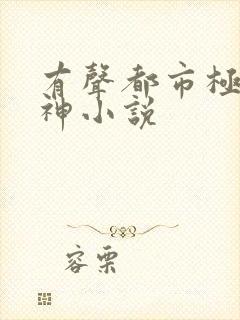 有聲都市極
神小説
容栗